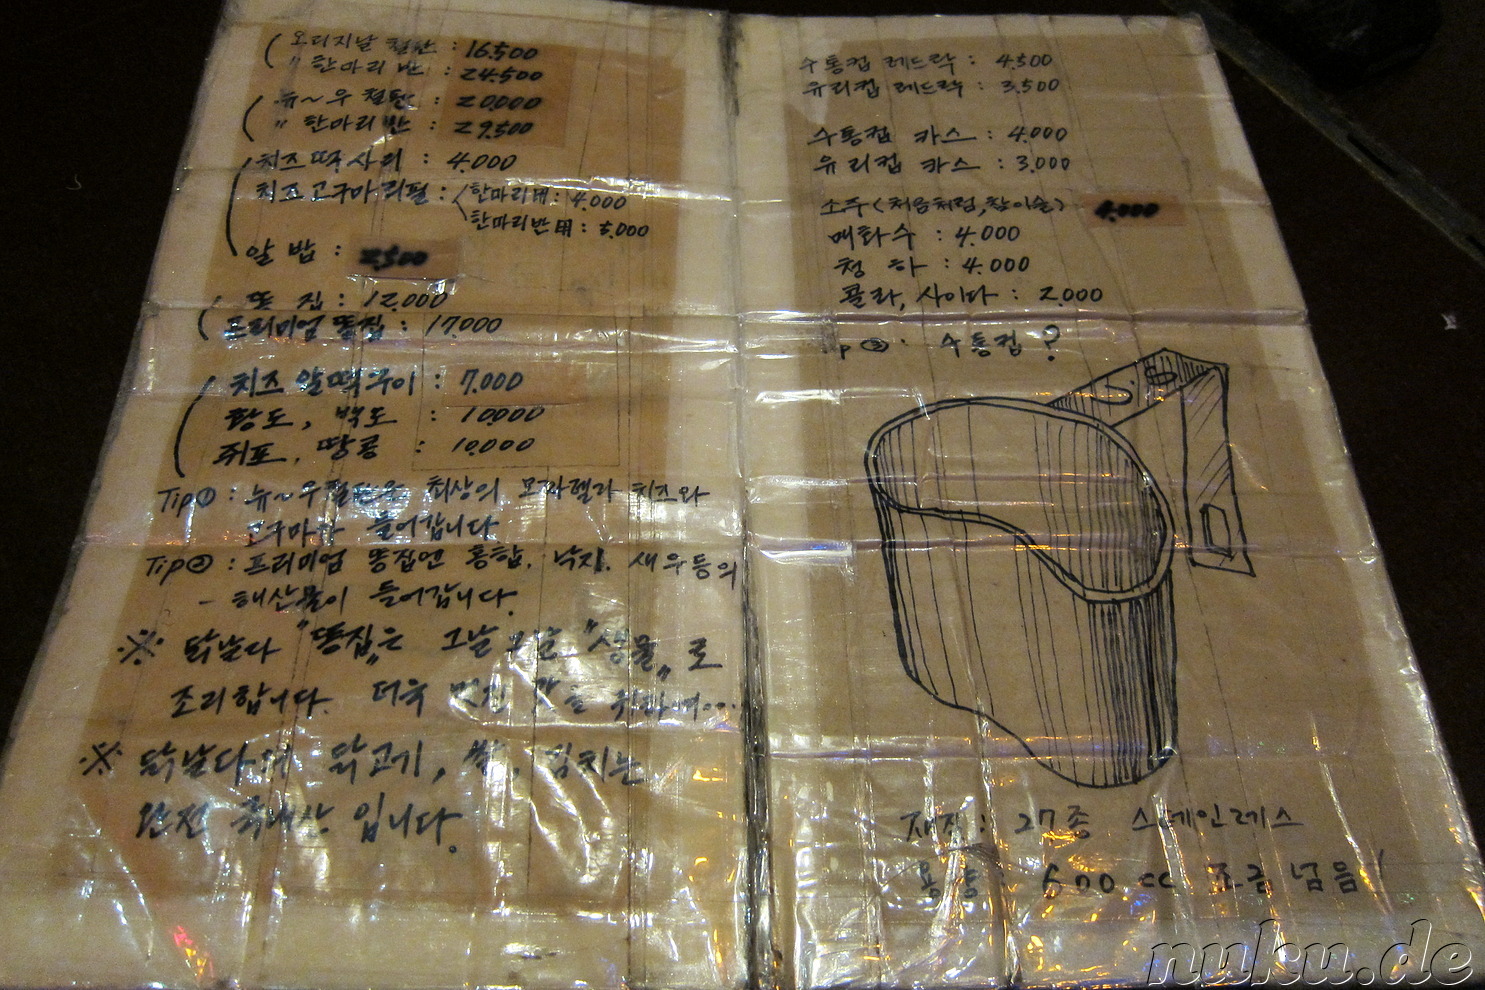 오리지날 철판 : 16.500
" 한마리 반 : 24.500
뉴~우 철판 : 20.000
" 한마리 반 : 29.500
치즈떡사리 : 4.000
치즈고구마리필 : 한마리用 : 4.000
한마리반用 : 5.000
알밥 : 2.500
똥집 : 12.000
프리미엄 똥집 : 17.000
치즈 알떡구이 : 7.000
황도, 백도 : 10.000
쥐포, 땅콩 : 10.000
Tip① : 뉴~우철판은 최상의 모짜렐라 치즈와
고구마가 들어갑니다
Tip② : 프리미엄 똥집엔 홍합, 낙지, 새우등의
- 해산물이 들어갑니다.
※ 닭날다 "똥집"은 그날 그날 "생물"로
조리합니다. 더욱 멋진 맛을 위하여...
※ 닭날다의 닭고기, 쌀, 김치는
완전 국내산 입니다.
수통컵 레드락 : 4.500
유리컵 레드락 : 3.500
수통컵 카스 : 4.000
유리컵 카스 : 3.000
소주(처음처럼,참이슬) 4.000
매화수 : 4.000
청하 : 4.000
콜라, 사이다 : 2.000
Tip③ : 수통컵?
U.S
재질 : 27종 스테인레스
용량 600 cc 조금 넘음!
nuku.de